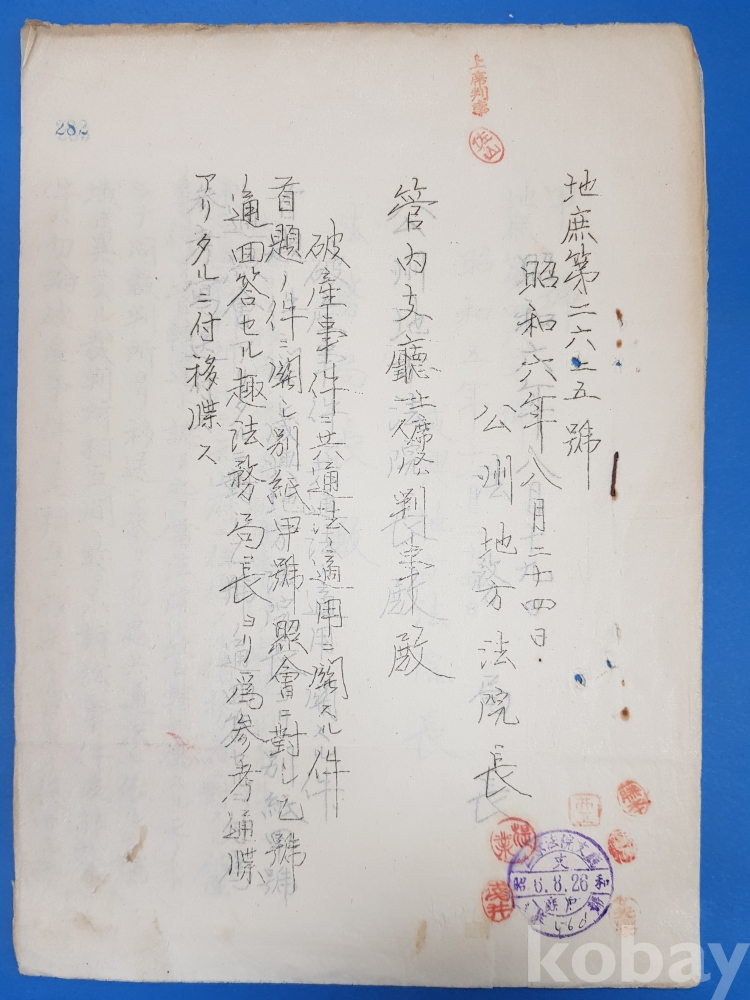 地庶第二六五五號
昭和六年八月二十四日
公州地方法院長
管內支廳上席判事殿
破產事件ニ共通法適用ニ關スル件
首題ノ件ニ關シ別紙甲號照會ニ對シ乙號
ノ通回答セル趣法務局長ヨリ爲參考通牒
アリタルニ付移牒ス
上席判事
282
昭和
6.8.26
kobay